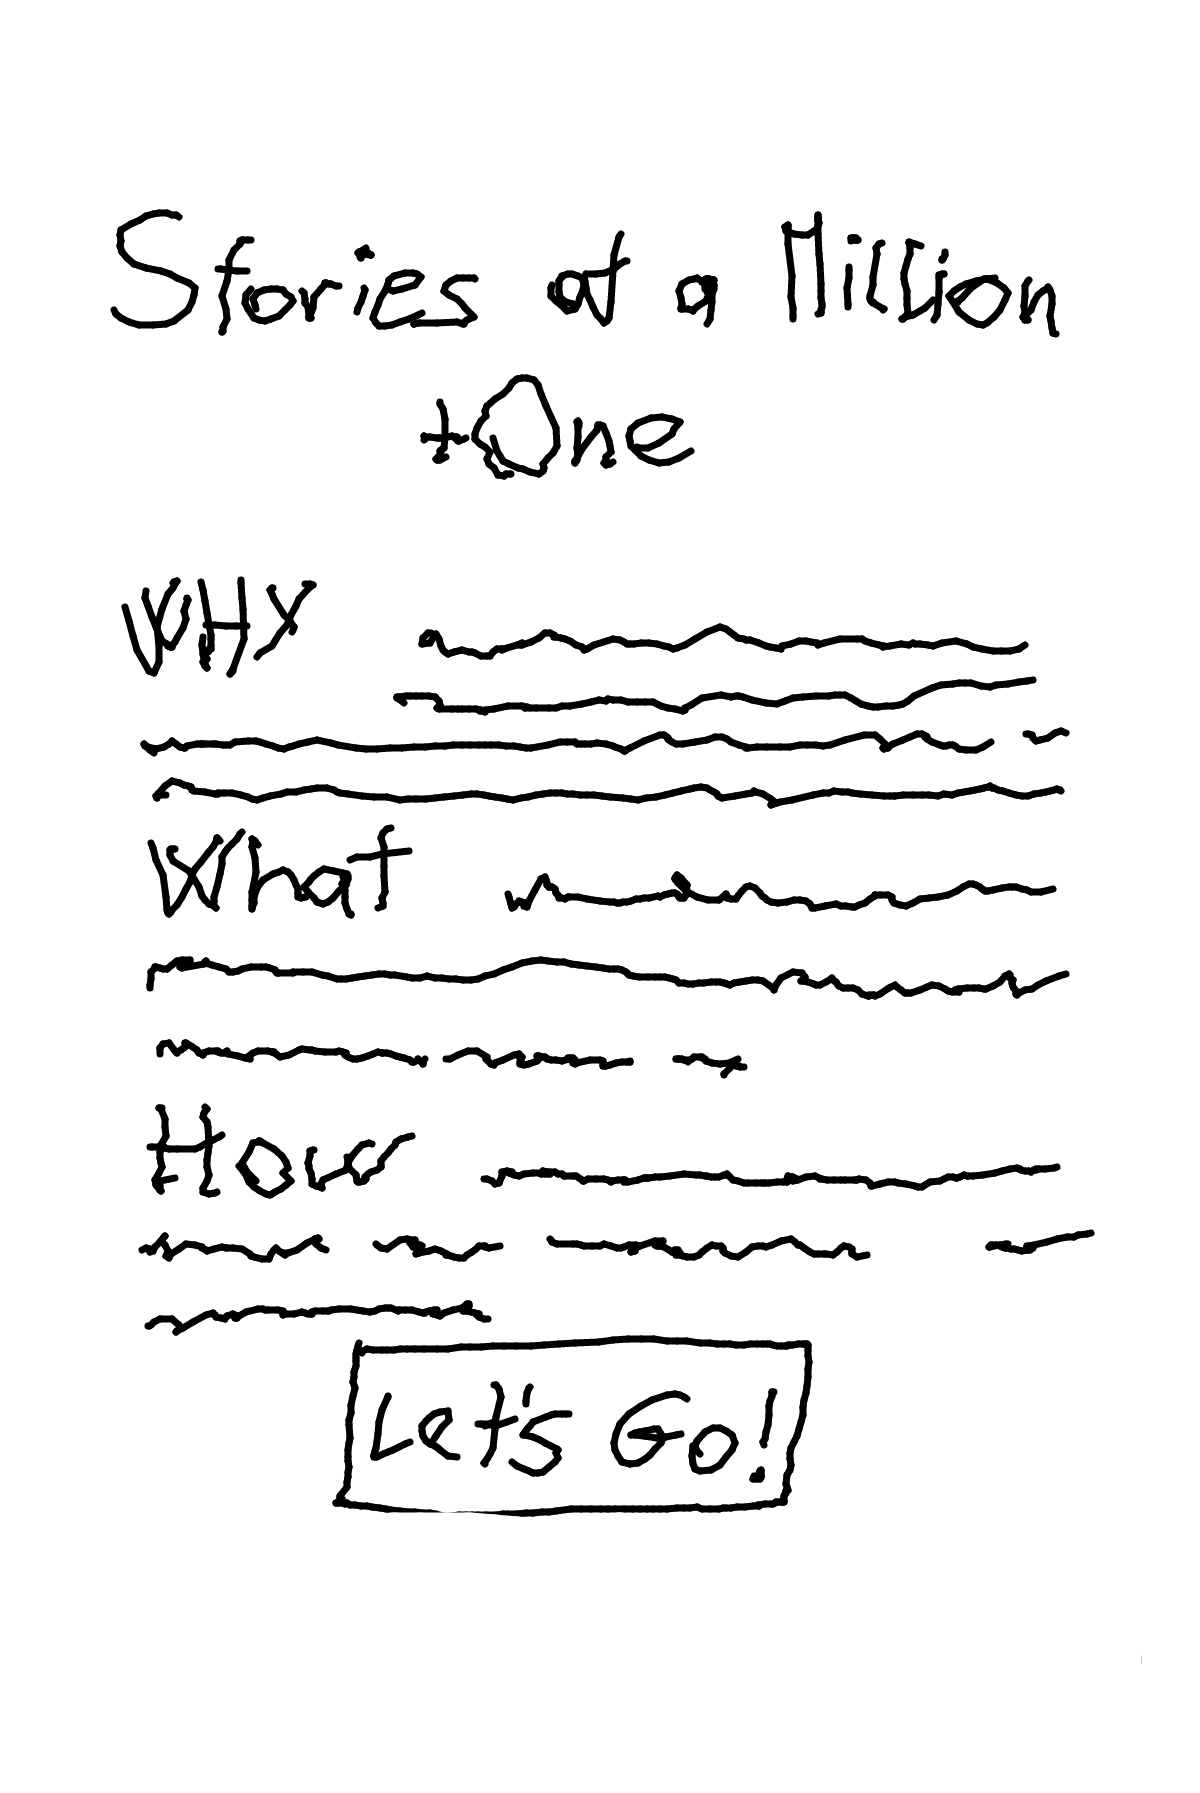 Stories at a Million
+One
WHY
What
How
Let's Go!